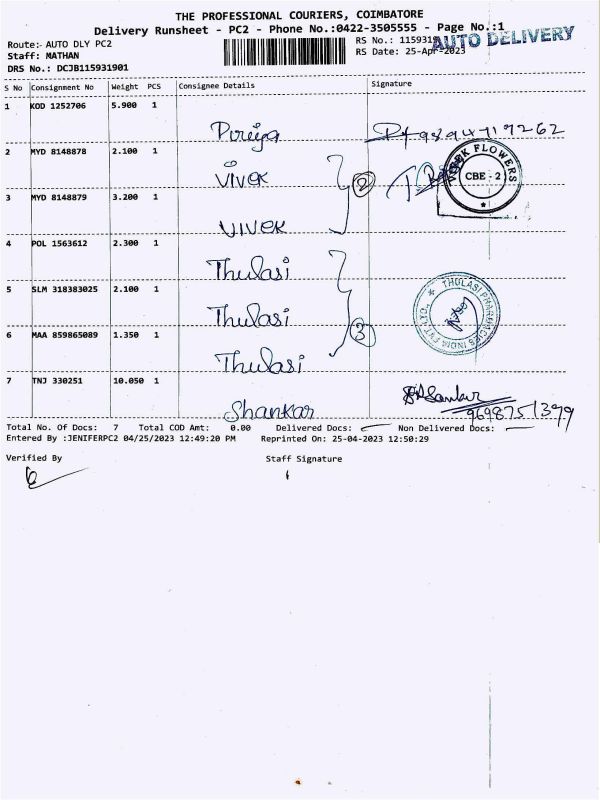 THE PROFESSIONAL COURIERS, COIMBATORE
Delivery Runsheet - PC2 - Phone No.:0422-3505555 - Page No.:1
AUTO DELIVERY
Route:- AUTO DLY PC2
RS No.: 1159319
Staff: MATHAN
RS Date: 25-Apr-2023
DRS No.: DCJB115931901
S No Consignment No Weight PCS Consignee Details Signature
1 KOD 1252706 5.900 1
Piriya 9894719262
2 MYD 8148878 2.100 1
VIVEK
VIVEK FLOWERS
CBE - 2
2
3 MYD 8148879 3.200 1
VIVEK
4 POL 1563612 2.300 1
Thulasi
5 SLM 318383025 2.100 1
Thulasi
THULASI PHARMACIES INDIA PVT LTD
3
6 MAA 859865089 1.350 1
Thulasi
7 TNJ 330251 10.050 1
Shankar
9698751399
Total No. Of Docs: 7 Total COD Amt: 0.00 Delivered Docs: Non Delivered Docs:
Entered By :JENIFERPC2 04/25/2023 12:49:20 PM Reprinted On: 25-04-2023 12:50:29
Verified By Staff Signature